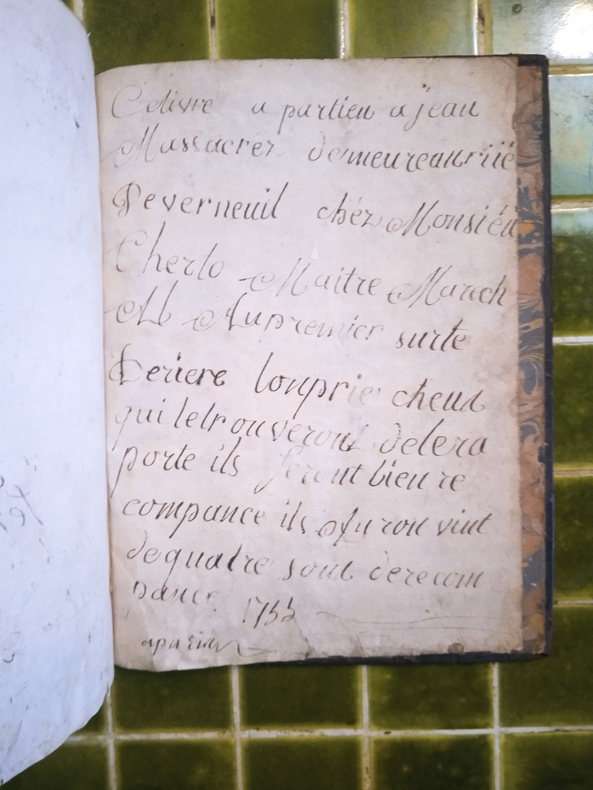 Celivre a partien a jean
Massacrez demeureanriie
Deverneuil chéz Monsiéu
Cherlo Maitre March
Au premier surle
Deriere lonprie cheus
qui letrouveront delera
porte ils feront bien ré
compance ils Auron vint
dequatre sous derecom
pance 1755
aparis